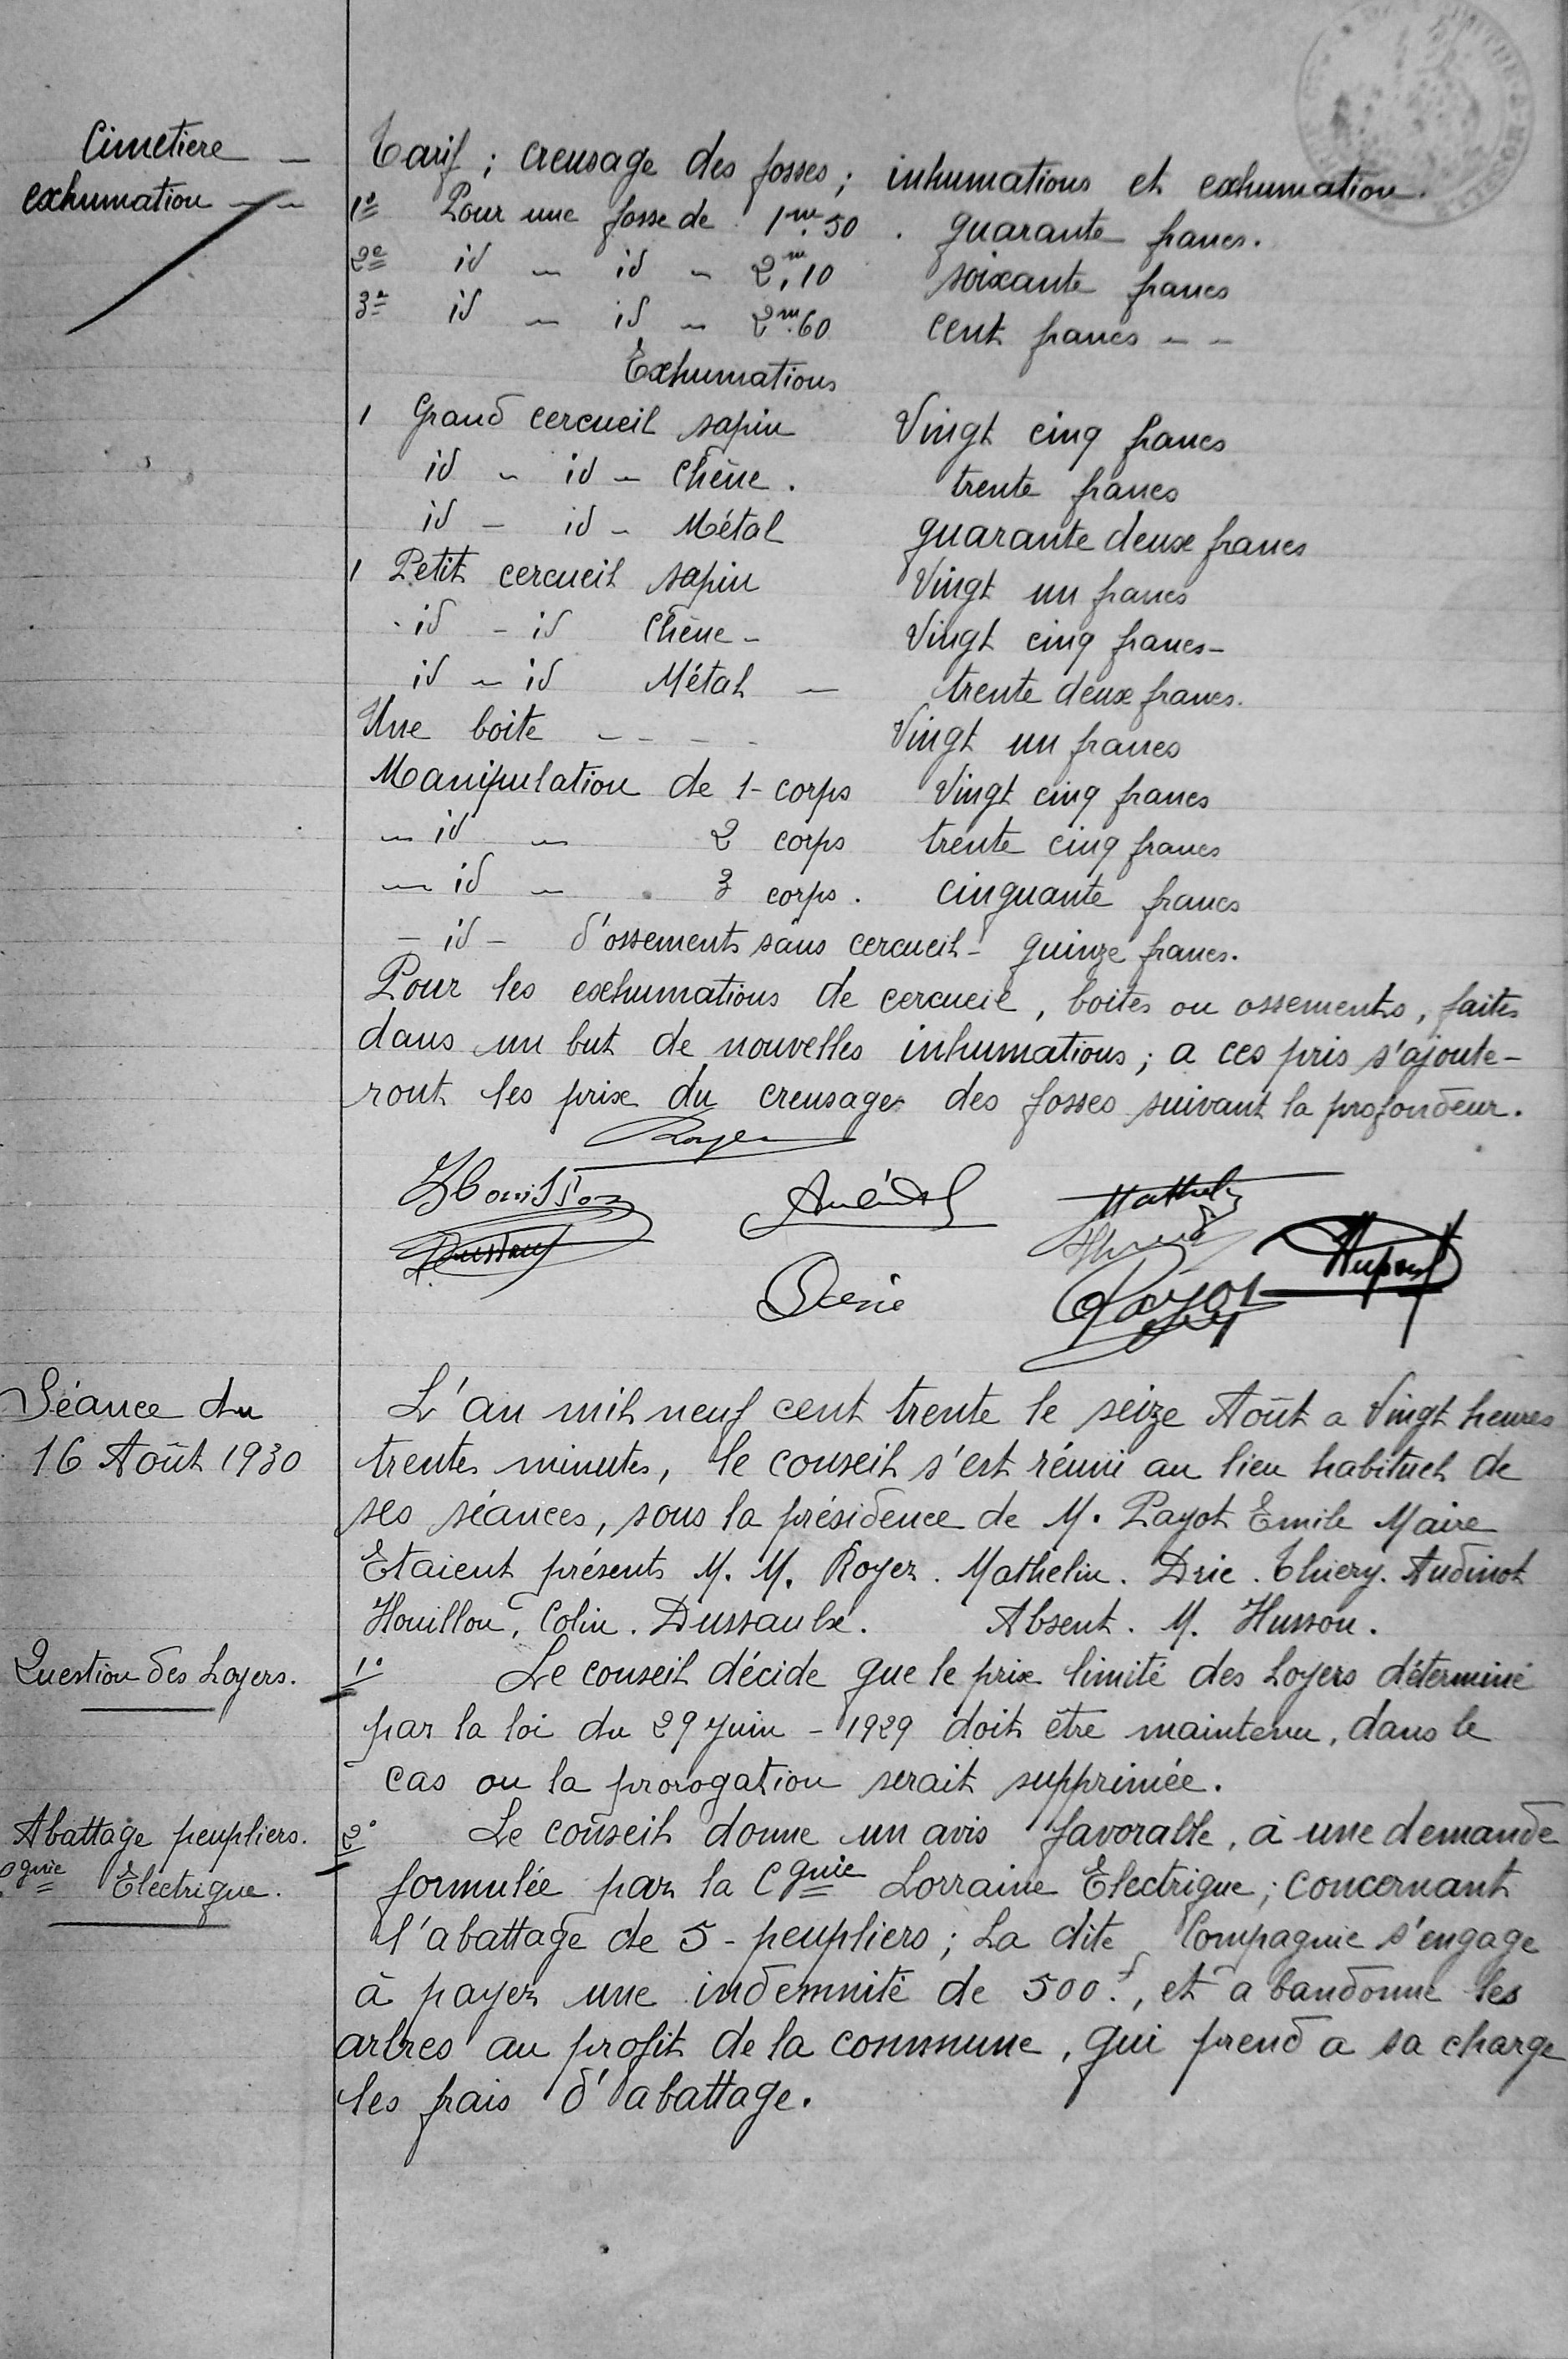 Cimetiere —
exhumation — —
Tarif ; creusage des fosses ; inhumations et exhumation.
1º Pour une fosse de 1m.50 . quarante francs.
2e id — id — 2m,10 soixante francs
3e id — id — 2m.60 cent francs — —
Exhumations
1 Grand cercueil sapin Vingt cinq francs
id — id — Chêne . trente francs
id — id — Métal quarante deux francs
1 Petit cercueil sapin Vingt un francs
id — id Chêne — Vingt cinq francs —
id — id Métal — trente deux francs.
Une boite - - - - Vingt un francs
Manipulation de 1 - corps Vingt cinq francs
— id — 2 corps trente cinq francs
— id — 3 corps . cinquante francs
— id — d'ossements sans cercueil — quinze francs.
Pour les exhumations de cercueil, boites ou ossements, faites
dans un but de nouvelles inhumations ; a ces pris s'ajoute-
ront les prix du creusage des fosses suivant la profondeur.
Royer
Mathelin
Payot
Séance du
16 Août 1930
L'an mil neuf cent trente le seize Août a Vingt heures
trentes minutes, le conseil s'est réuni au lieu habituel de
ses séances, sous la présidence de M. Payot Emile Maire
Etaient présents M. M. Royer. Mathelin. Drie. Thiery. Audinot
Houillon, Colin. Dussaulx. Absent. M. Husson.
Question des Loyers.
1º Le conseil décide que le prix limité des Loyers déterminé
par la loi du 29 Juin - 1929 doit être maintenu, dans le
cas ou la prorogation serait supprimée.
Abattage peupliers.
Cgnie Electrique.
2º Le conseil donne un avis favorable, à une demande
formulée par la Cgnie Lorraine Electrique ; concernant
l'abattage de 5 - peupliers ; La dite Compagnie s'engage
à payer une indemnité de 500f., et abandonne les
arbres au profit de la commune, qui prend a sa charge
les frais d'abattage.